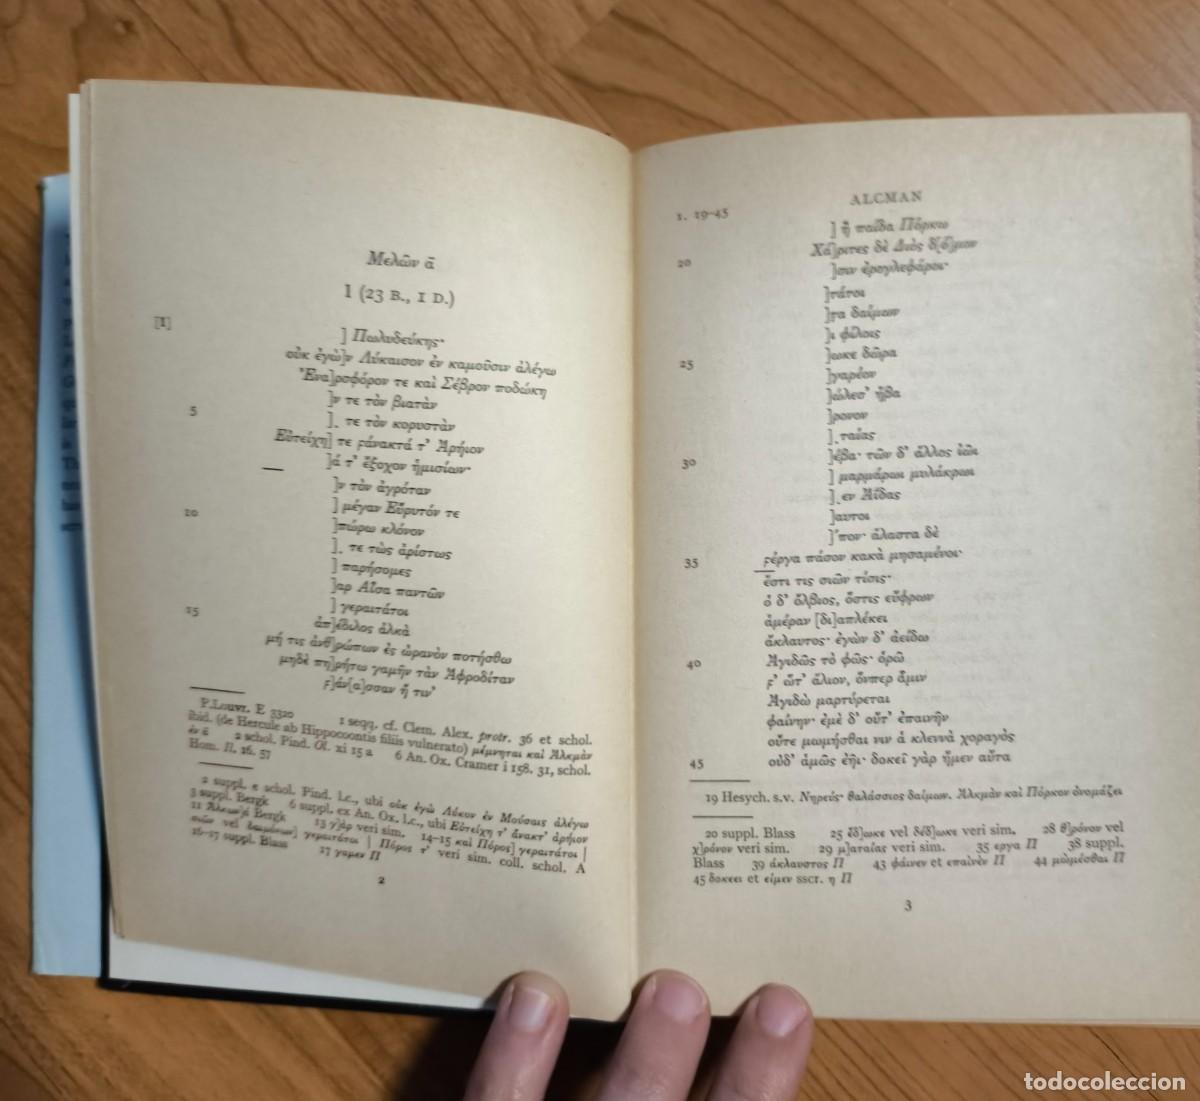 Μελῶν ᾱ
1 (23 B., 1 D.)
[1] ] Πωλυδεύκης·
οὐκ ἐγὼ]ν Λύκαισον ἐν καμοῦσιν ἀλέγω
Ἐνα]ρσφόρον τε καὶ Σέβρον ποδώκη
]ν τε τὸν βιατὰν
5 ]. τε τὸν κορυστὰν
Εὐτείχη] τε ϝάνακτά τ' Ἀρήιον
]ά τ' ἔξοχον ἡμισίων·
]ν τὸν ἀγρόταν
] μέγαν Εὔρυτόν τε
10 ]πώρω κλόνον
]. τε τὼς ἀρίστως
] παρήσομες
]αρ Αἶσα παντῶν
] γεραιτάτοι
15 ἀπ]έδιλος ἀλκὰ
μή τις ἀνθ]ρώπων ἐς ὠρανὸν ποτήσθω
μηδὲ πη]ρήτω γαμῆν τὰν Ἀφροδίταν
ϝ]άν[α]σσαν ἤ τιν'
P.Louvr. E 3320 1 seqq. cf. Clem. Alex. protr. 36 et schol.
ibid. (de Hercule ab Hippocoontis filiis vulnerato) μέμνηται καὶ Ἀλκμὰν
ἐν ᾱ 2 schol. Pind. Ol. xi 15 a 6 An. Ox. Cramer i 158. 31, schol.
Hom. Il. 16. 57
2 suppl. e schol. Pind. l.c., ubi οὐκ ἐγὼ Λύκον ἐν Μούσαις ἀλέγω
3 suppl. Bergk 6 suppl. ex An. Ox. l.c., ubi Εὐτείχη τ' ἄνακτ' ἀρήιον
11 Ἄλκων]ά Bergk 13 γ]ὰρ veri sim. 14–15 καὶ Πόρος] γεραιτάτοι |
σιῶν vel δαιμόνων] γεραιτάτοι | Πόρος τ' veri sim. coll. schol. A
16–17 suppl. Blass 17 γαμεν Π
2
1. 19–45 ALCMAN
] ἢ παίδα Πόρκω
20 Χά]ριτες δὲ Διὸς δ[ό]μον
]σιν ἐρογλεφάροι·
]τάτοι
]τα δαίμων
]ι φίλοις
25 ]ωκε δῶρα
]γαρέον
]ώλεσ' ἥβα
]ρονον
].ταίας
30 ]έβα· τῶν δ' ἄλλος ἰῶι
] μαρμάρωι μυλάκρωι
].εν Ἀΐδας
]αυτοι
]'πον· ἄλαστα δὲ
35 ϝέργα πάσον κακὰ μησαμένοι·
ἔστι τις σιῶν τίσις·
ὁ δ' ὄλβιος, ὅστις εὔφρων
ἁμέραν [δι]απλέκει
ἄκλαυτος· ἐγὼν δ' ἀείδω
40 Ἀγιδῶς τὸ φῶς· ὁρῶ
ϝ' ὥτ' ἄλιον, ὅνπερ ἇμιν
Ἀγιδὼ μαρτύρεται
φαίνην· ἐμὲ δ' οὔτ' ἐπαινῆν
οὔτε μωμήσθαι νιν ἁ κλεννὰ χοραγὸς
45 οὐδ' ἁμῶς ἐῆι· δοκεῖ γὰρ ἤμεν αὔτα
19 Hesych. s.v. Νηρεύς· θαλάσσιος δαίμων. Ἀλκμὰν καὶ Πόρκον ὀνομάζει
20 suppl. Blass 25 ἔδ]ωκε vel δέδ]ωκε veri sim. 28 θ]ρόνον vel
χ]ρόνον veri sim. 29 μ]αταίας veri sim. 35 εργα Π 38 suppl.
Blass 39 ἀκλαυστος Π 43 φάινεν et επαὶνὲν Π 44 μωμέσθαι Π
45 δοκεει et εἰμεν sscr. η Π
3
todocoleccion